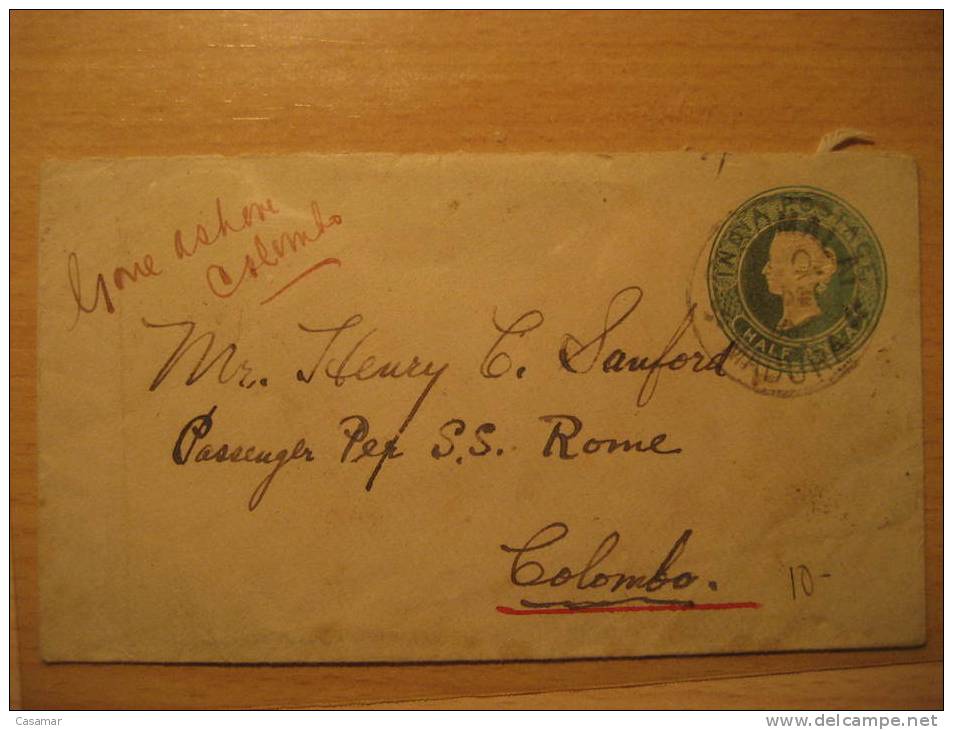 Gone ashore
Colombo
Mr. Henry C. Sanford
Passenger Per S.S. Rome
Colombo.
10-
INDIA POSTAGE
HALF ANNA
Casamar
www.delcampe.net